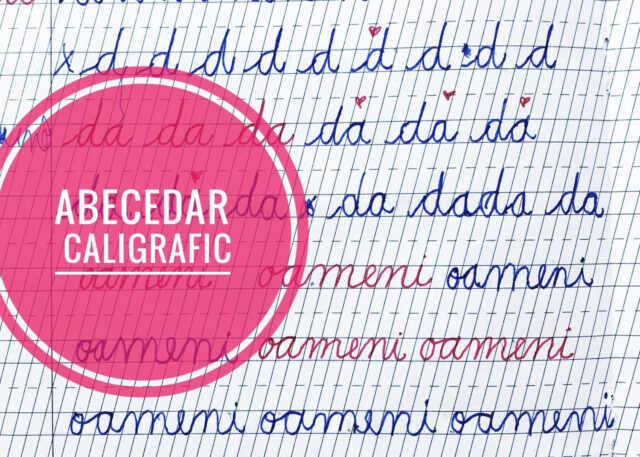 x d d d d d d d d d
da da da da da da
da da da da dada da
ABECEDAR
CALIGRAFIC
oameni oameni oameni
oameni oameni oameni
oameni oameni oameni